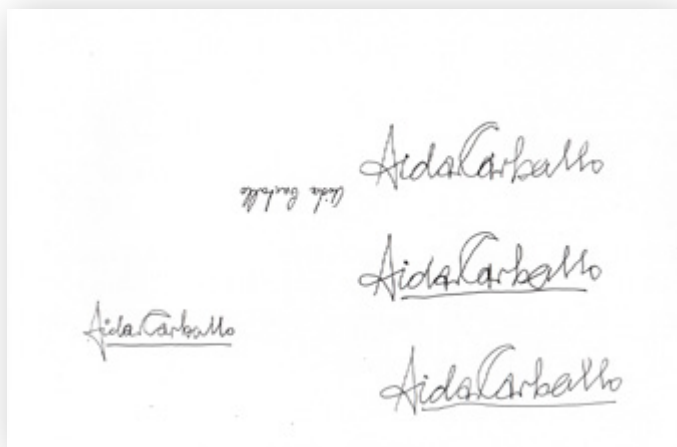 Aida Carballo
Aida Carballo
Aida Carballo
Aida Carballo
Aida Carballo